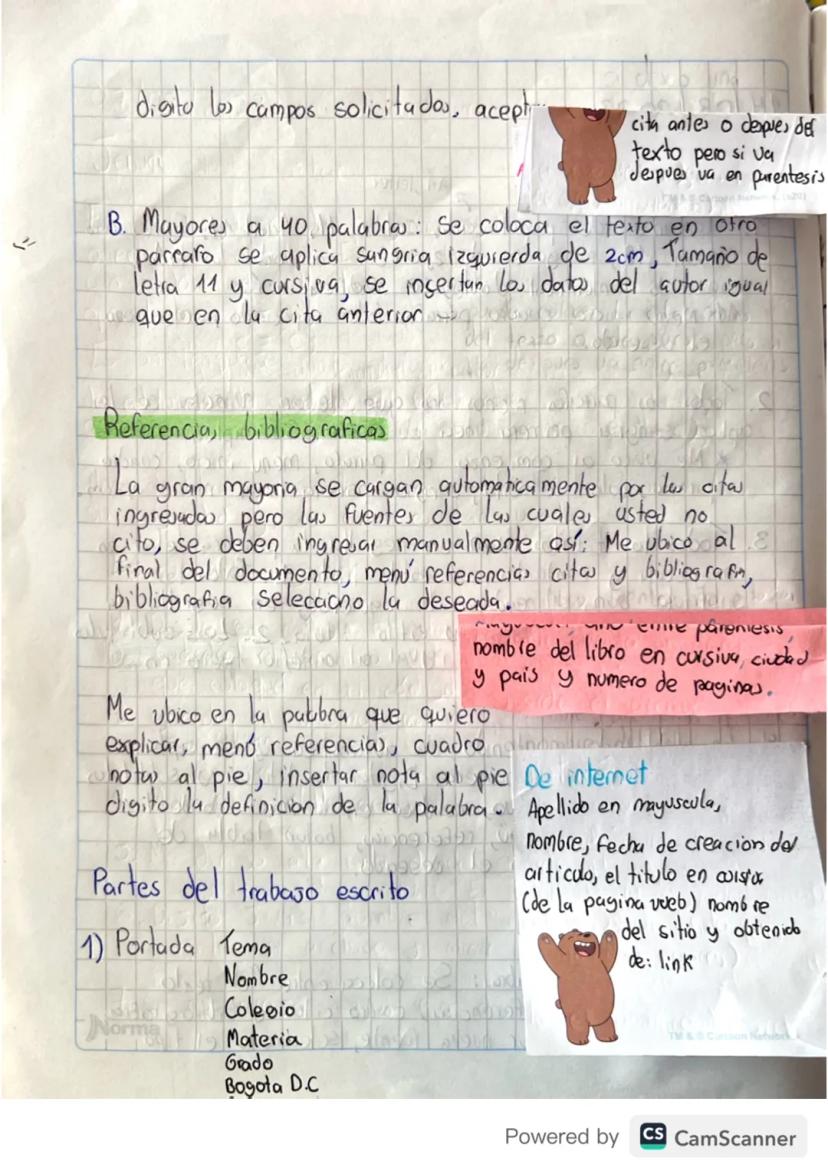 digito los campos solicitados, acept
cita antes o depues del
texto pero si va
despues va en parentesis
B. Mayores a 40 palabras: se coloca el texto en otro
parrafo se aplica sangria izquierda de 2cm, Tamaño de
letra 11 y cursiva, se insertan los datos del autor igual
que en la cita anterior
Referencias bibliograficas
La gran mayoria se cargan automaticamente por las citas
ingresadas pero las fuentes de las cuales usted no
cito, se deben ingresar manualmente así: Me ubico al
final del documento, menú referencias citas y bibliografia,
bibliografia selecacino la deseada.
entre parentesis,
nombre del libro en cursiva, ciudad
y pais y numero de paginas.
Me ubico en la palabra que quiero
explicar, menú referencias, cuadro
notas al pie, insertar nota al pie
digito la definicion de la palabra.
De internet
Apellido en mayuscula,
nombre, fecha de creacion del
articulo, el titulo en
(de la pagina web) nombre
del sitio y obtenido
de: link
Partes del trabajo escrito
1) Portada Tema
Nombre
Colegio
Materia
Grado
Bogota D.C
Norma
TM & © Cartoon Network
Powered by CS CamScanner